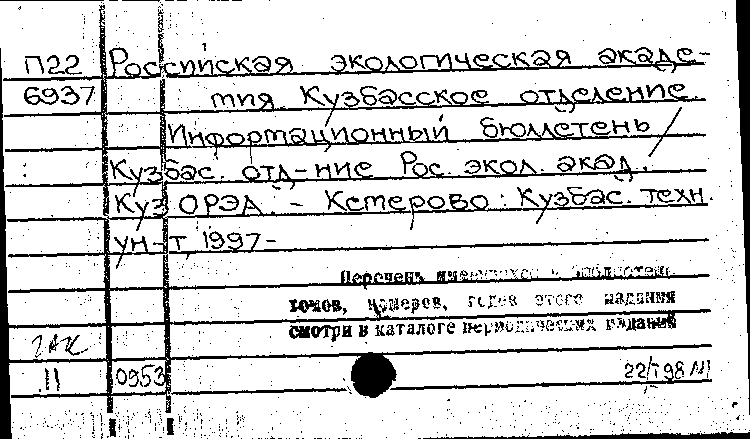 П22 Российская экологическая акаде-
6937 мия. Кузбасское отделение.
Информационный бюллетень /
Кузбас. отд-ние Рос. экол. акад.
КузОРЭА. - Кемерово: Кузбас. техн.
ун-т, 1997-
Перечень имеющихся в библиотеке
томов, номеров, годов этого издания
смотри в каталоге периодических изданий
11 0953 22/I 98 М